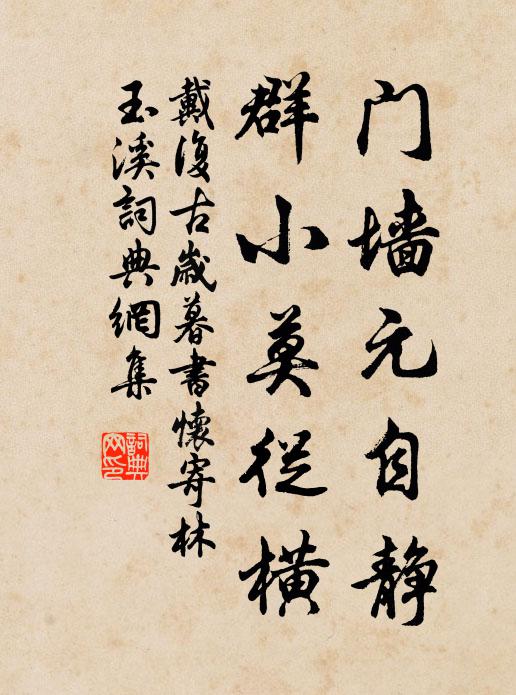 门墙元自静
群小莫從横
戴復古歲暮書懷寄林
玉溪詞典網集
詞典网印